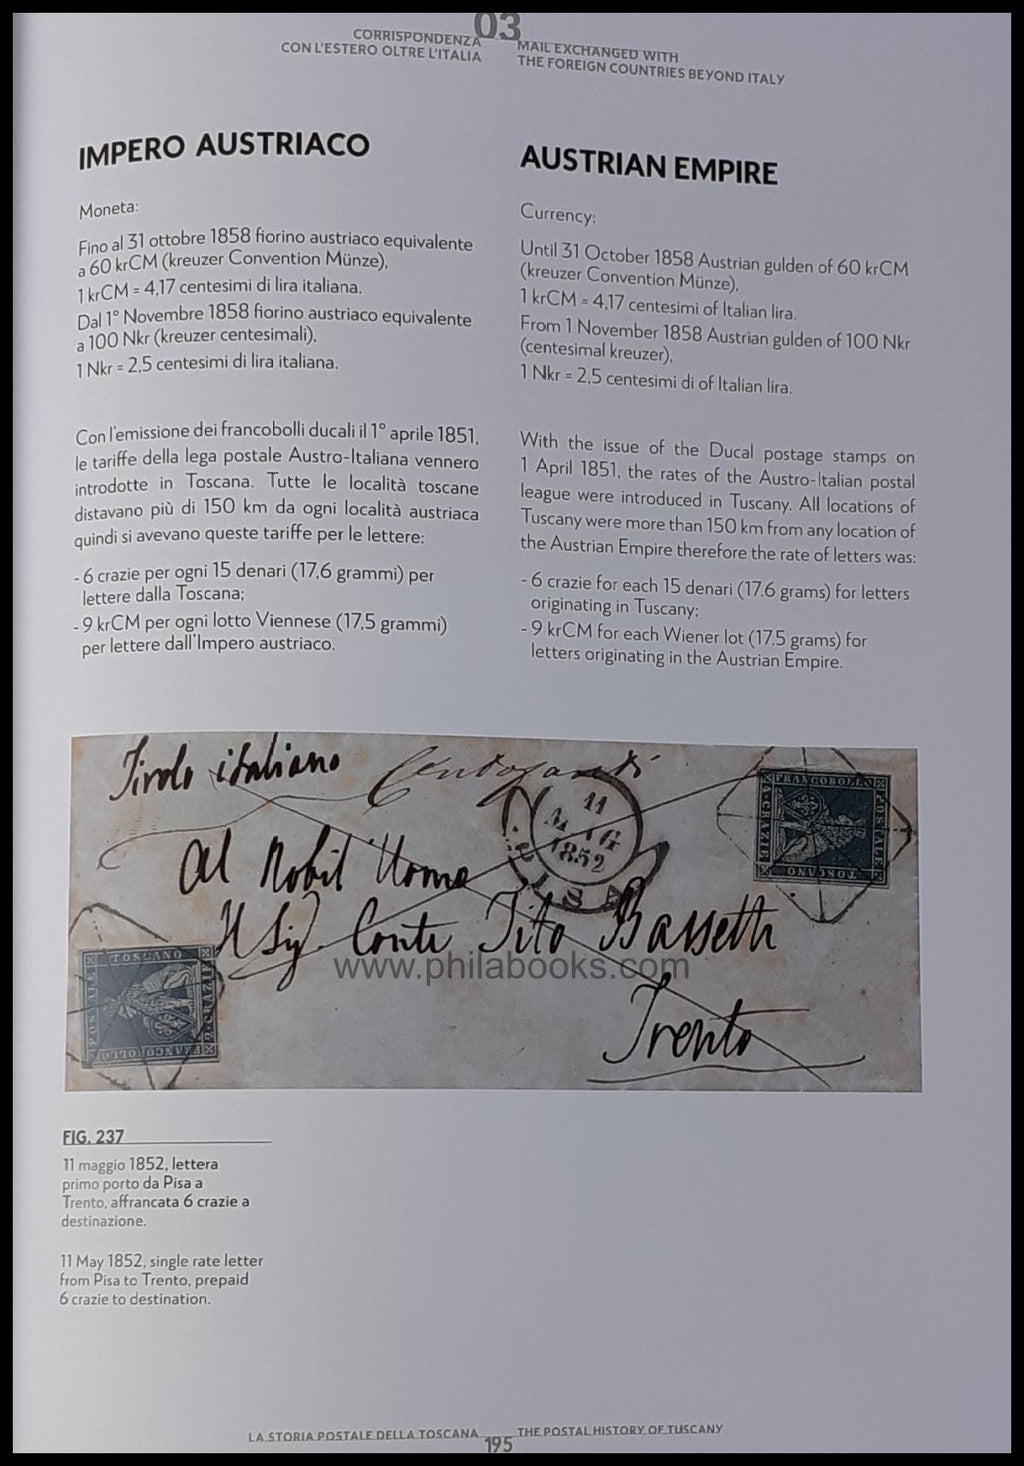 03
CORRISPONDENZA
CON L'ESTERO OLTRE L'ITALIA
MAIL EXCHANGED WITH
THE FOREIGN COUNTRIES BEYOND ITALY
IMPERO AUSTRIACO
Moneta:
Fino al 31 ottobre 1858 fiorino austriaco equivalente
a 60 krCM (kreuzer Convention Münze),
1 krCM = 4,17 centesimi di lira italiana.
Dal 1° Novembre 1858 fiorino austriaco equivalente
a 100 Nkr (kreuzer centesimali),
1 Nkr = 2,5 centesimi di lira italiana.
Con l'emissione dei francobolli ducali il 1° aprile 1851,
le tariffe della lega postale Austro-Italiana vennero
introdotte in Toscana. Tutte le località toscane
distavano più di 150 km da ogni località austriaca
quindi si avevano queste tariffe per le lettere:
- 6 crazie per ogni 15 denari (17,6 grammi) per
lettere dalla Toscana;
- 9 krCM per ogni lotto Viennese (17,5 grammi)
per lettere dall'Impero austriaco.
AUSTRIAN EMPIRE
Currency:
Until 31 October 1858 Austrian gulden of 60 krCM
(kreuzer Convention Münze),
1 krCM = 4,17 centesimi of Italian lira.
From 1 November 1858 Austrian gulden of 100 Nkr
(centesimal kreuzer),
1 Nkr = 2,5 centesimi di of Italian lira.
With the issue of the Ducal postage stamps on
1 April 1851, the rates of the Austro-Italian postal
league were introduced in Tuscany. All locations of
Tuscany were more than 150 km from any location of
the Austrian Empire therefore the rate of letters was:
- 6 crazie for each 15 denari (17.6 grams) for letters
originating in Tuscany;
- 9 krCM for each Wiener lot (17.5 grams) for
letters originating in the Austrian Empire.
Tirolo italiano
11
MAG
1852
PISA
FRANCOBOLLO
POSTALE
TOSCANO
4 CRAZIE
Al Nobil Uomo
Il Sig. Conte Tito Bassetti
Trento
TOSCANO
2 CRAZIE
FRANCOBOLLO
POSTALE
www.philabooks.com
FIG. 237
11 maggio 1852, lettera
primo porto da Pisa a
Trento, affrancata 6 crazie a
destinazione.
11 May 1852, single rate letter
from Pisa to Trento, prepaid
6 crazie to destination.
LA STORIA POSTALE DELLA TOSCANA
195
THE POSTAL HISTORY OF TUSCANY